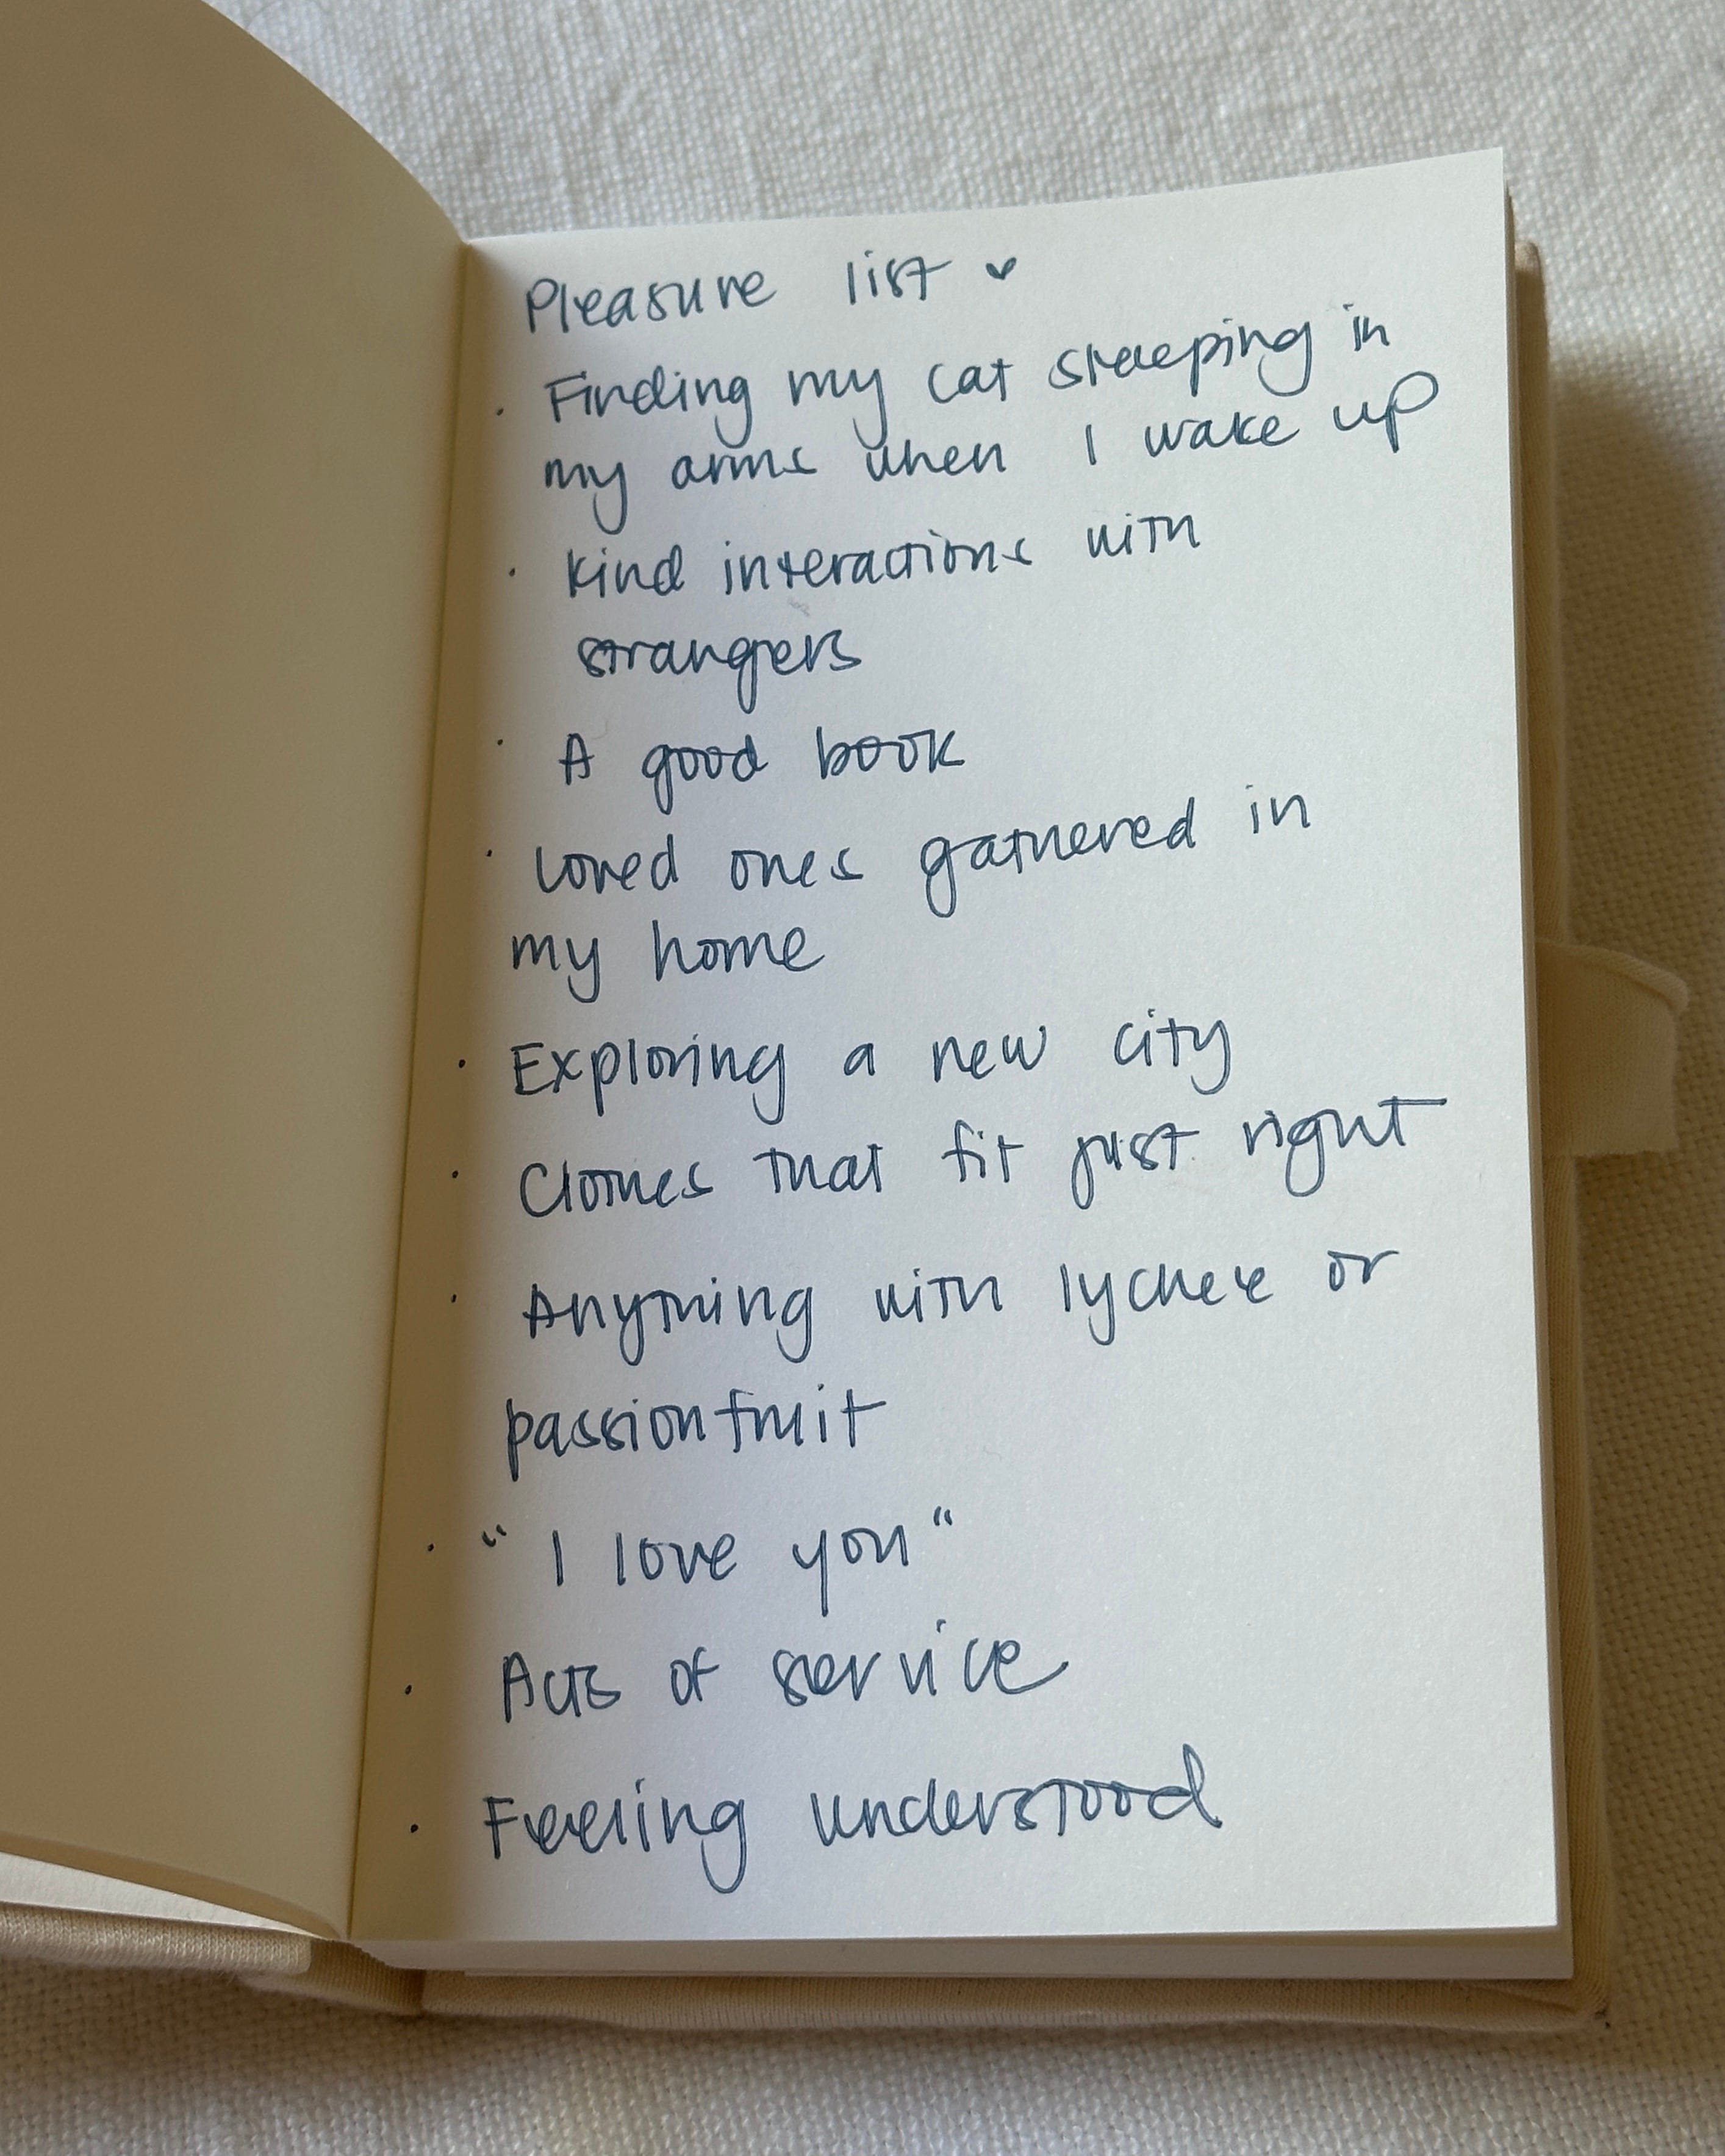 Pleasure list ♥
· Finding my cat sleeping in
my arms when I wake up
· Kind interactions with
strangers
· A good book
· Loved ones gathered in
my home
· Exploring a new city
· Clothes that fit just right
· Anything with lychee or
passionfruit
· "I love you"
· Acts of service
· Feeling understood